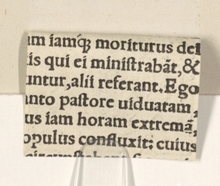 m iamq́ꝫ moriturus de
is qui ei ministrabāt, &
untur, alii referant. Ego
nto pastore uiduatam,
us iam horam extremā,
opulus confluxit: cuius